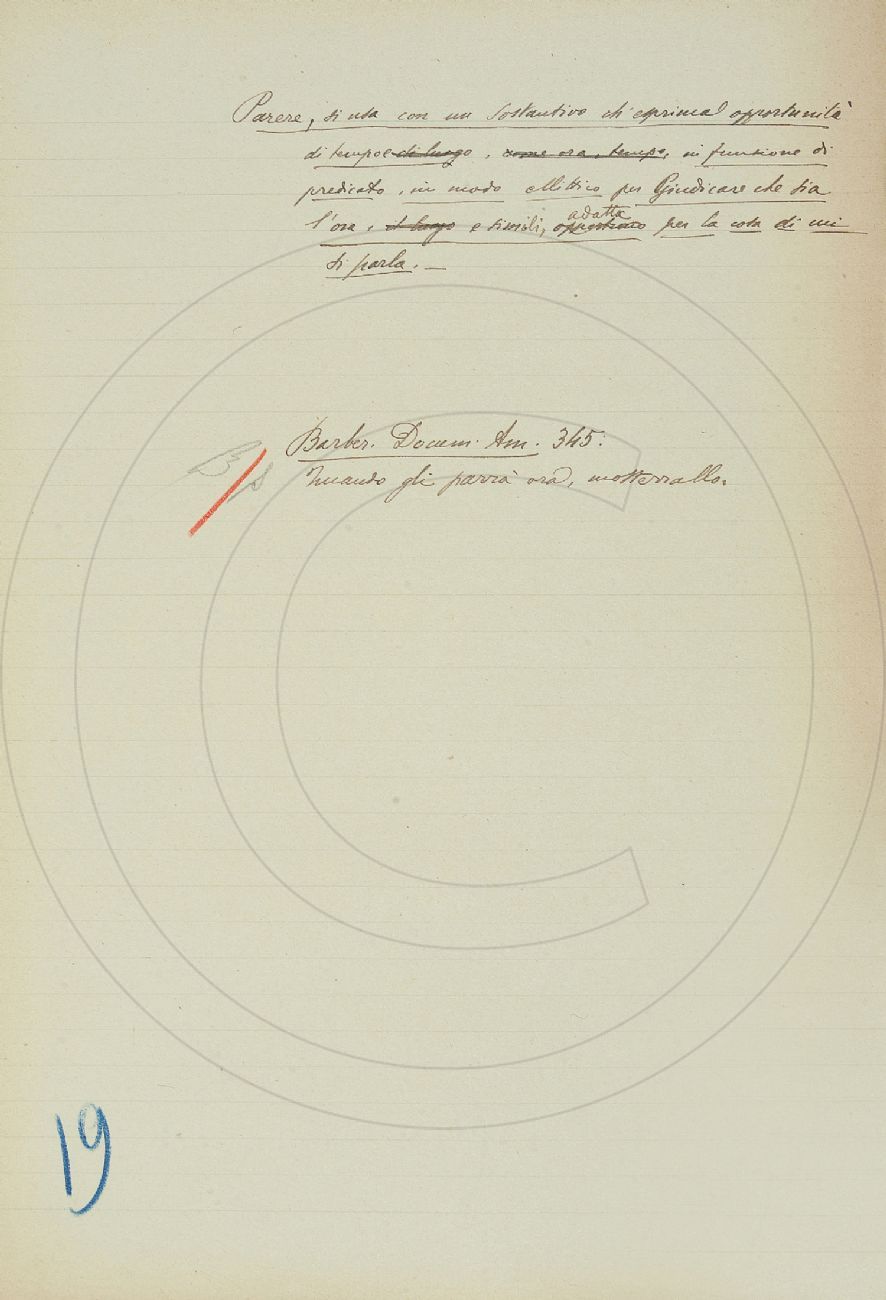 Parere, si usa con un sostantivo ch'esprima opportunità
di tempo e di luogo, come ora, tempo, in funzione di
predicato, in modo ellittico per Giudicare che sia
l'ora, il luogo e simili, adatta opportuno per la cosa di cui
si parla. —
Barber. Docum. Am. 345:
Quando gli parrà ora, mosterrallo.
19